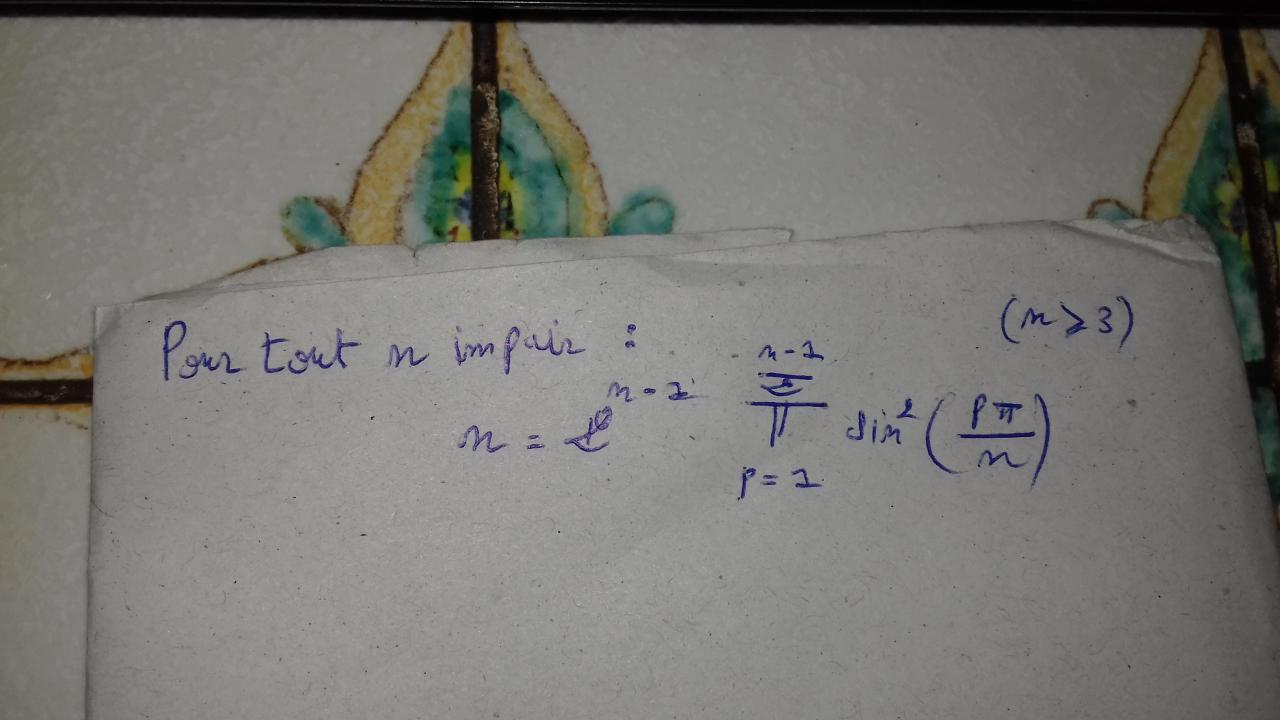 Pour tout n impair : (n ≥ 3)
n = 2^{n-1} \prod_{p=1}^{\frac{n-1}{2}} sin^2 ( \frac{pπ}{n} )